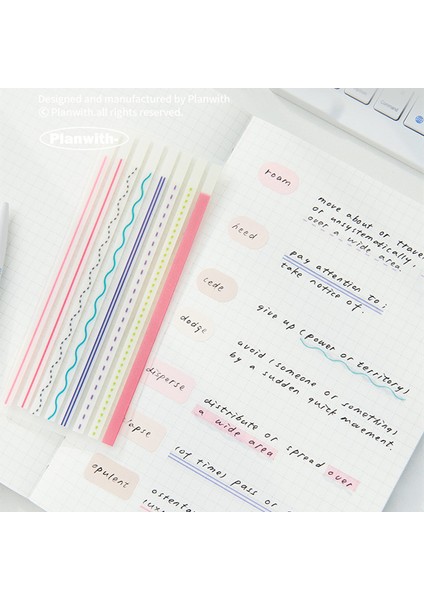 Designed and manufactured by Planwith
© Planwith.all rights reserved.
Planwith-
roam
move about or trave
or unsystematically,
over a wide area
heed
pay attention to;
take notice of
cede
give up (power or territory)
dodge
avoid (someone or something)
by a sudden quick movement.
disperse
distribute or spread over
a wide area
lapse
(of time) pass or
opulent
ostenta